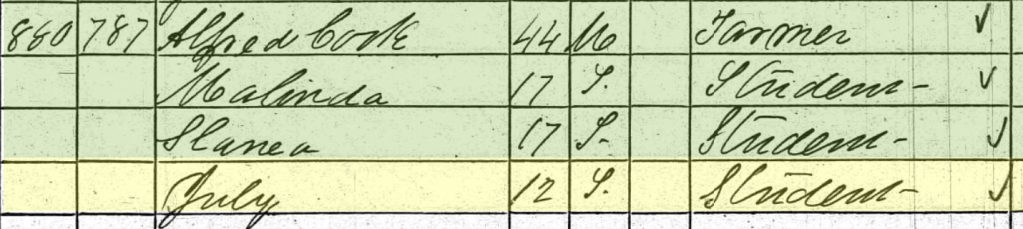 860 787 Alfred Cook 44 M Farmer ✓
Malinda 17 S. Student ✓
17 S. Student ✓
July 12 S. Student ✓